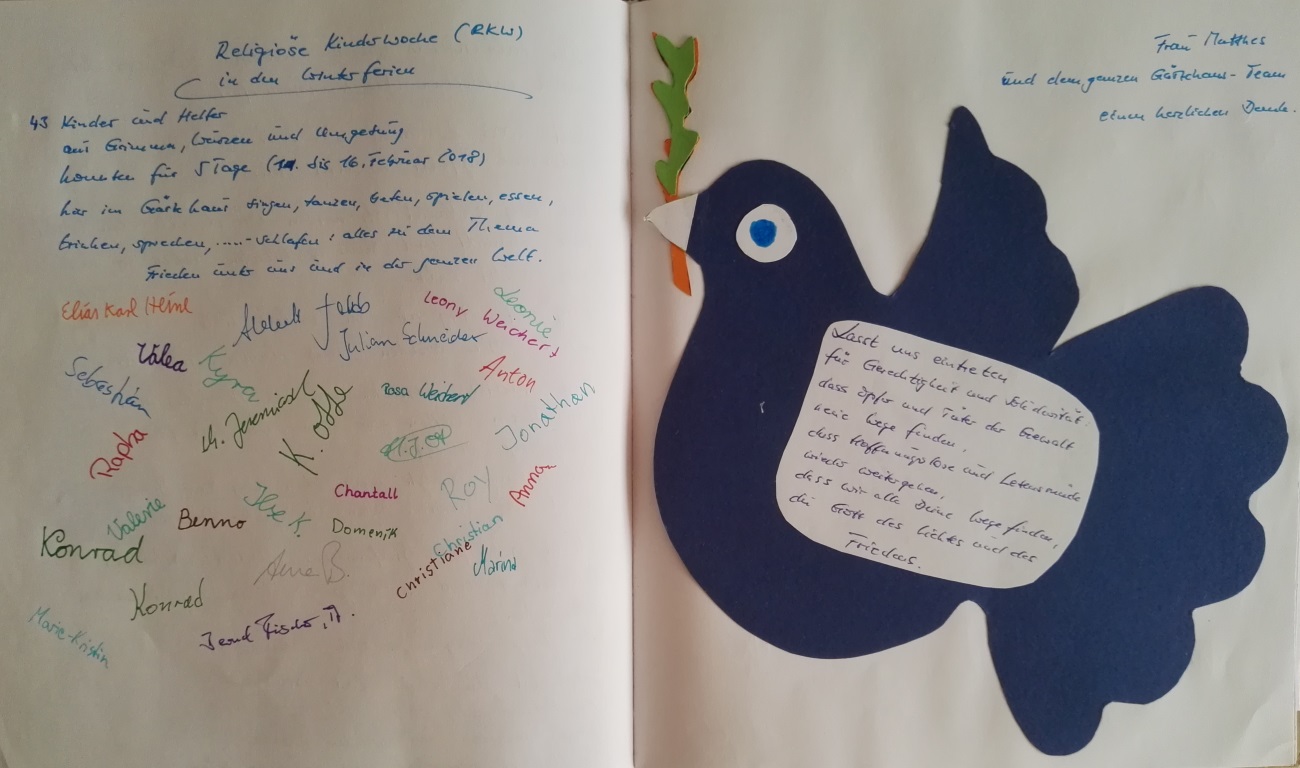 Religiöse Kinderwoche (RKW)
in den Winterferien
43 Kinder und Helfer
aus Grimma, Wurzen und Umgebung
konnten für 5 Tage (bis 16. Februar 2018)
hier im Gästehaus singen, tanzen, beten, spielen, essen,
trinken, sprechen, ..... schlafen: alles zu dem Thema
Frieden unter uns und in der ganzen Welt.
Elias Karl Heine
Jakob
Leony Weichert
Leonie
Julian Schneider
Valea
Kyra
Sebastian
Anton
Rosa Weichert
M. Jeremiasch
K. Offe
Jonathan
Rapha
Chantall
Roy
Anna
Valerie
Benno
Ilse K.
Domenik
Christian
Konrad
Anne B.
Christiane
Marina
Konrad
Marie-Kristin
Frau Matthes
und dem ganzen Gästehaus-Team
einen herzlichen Dank.
Lasst uns eintreten
für Gerechtigkeit und Solidarität:
dass Opfer und Täter der Gewalt
neue Wege finden,
dass Hoffnungslose und Lebensmüde
wieder weitergehen,
dass wir alle Deine Wege finden,
du Gott des Lichtes und des
Friedens.